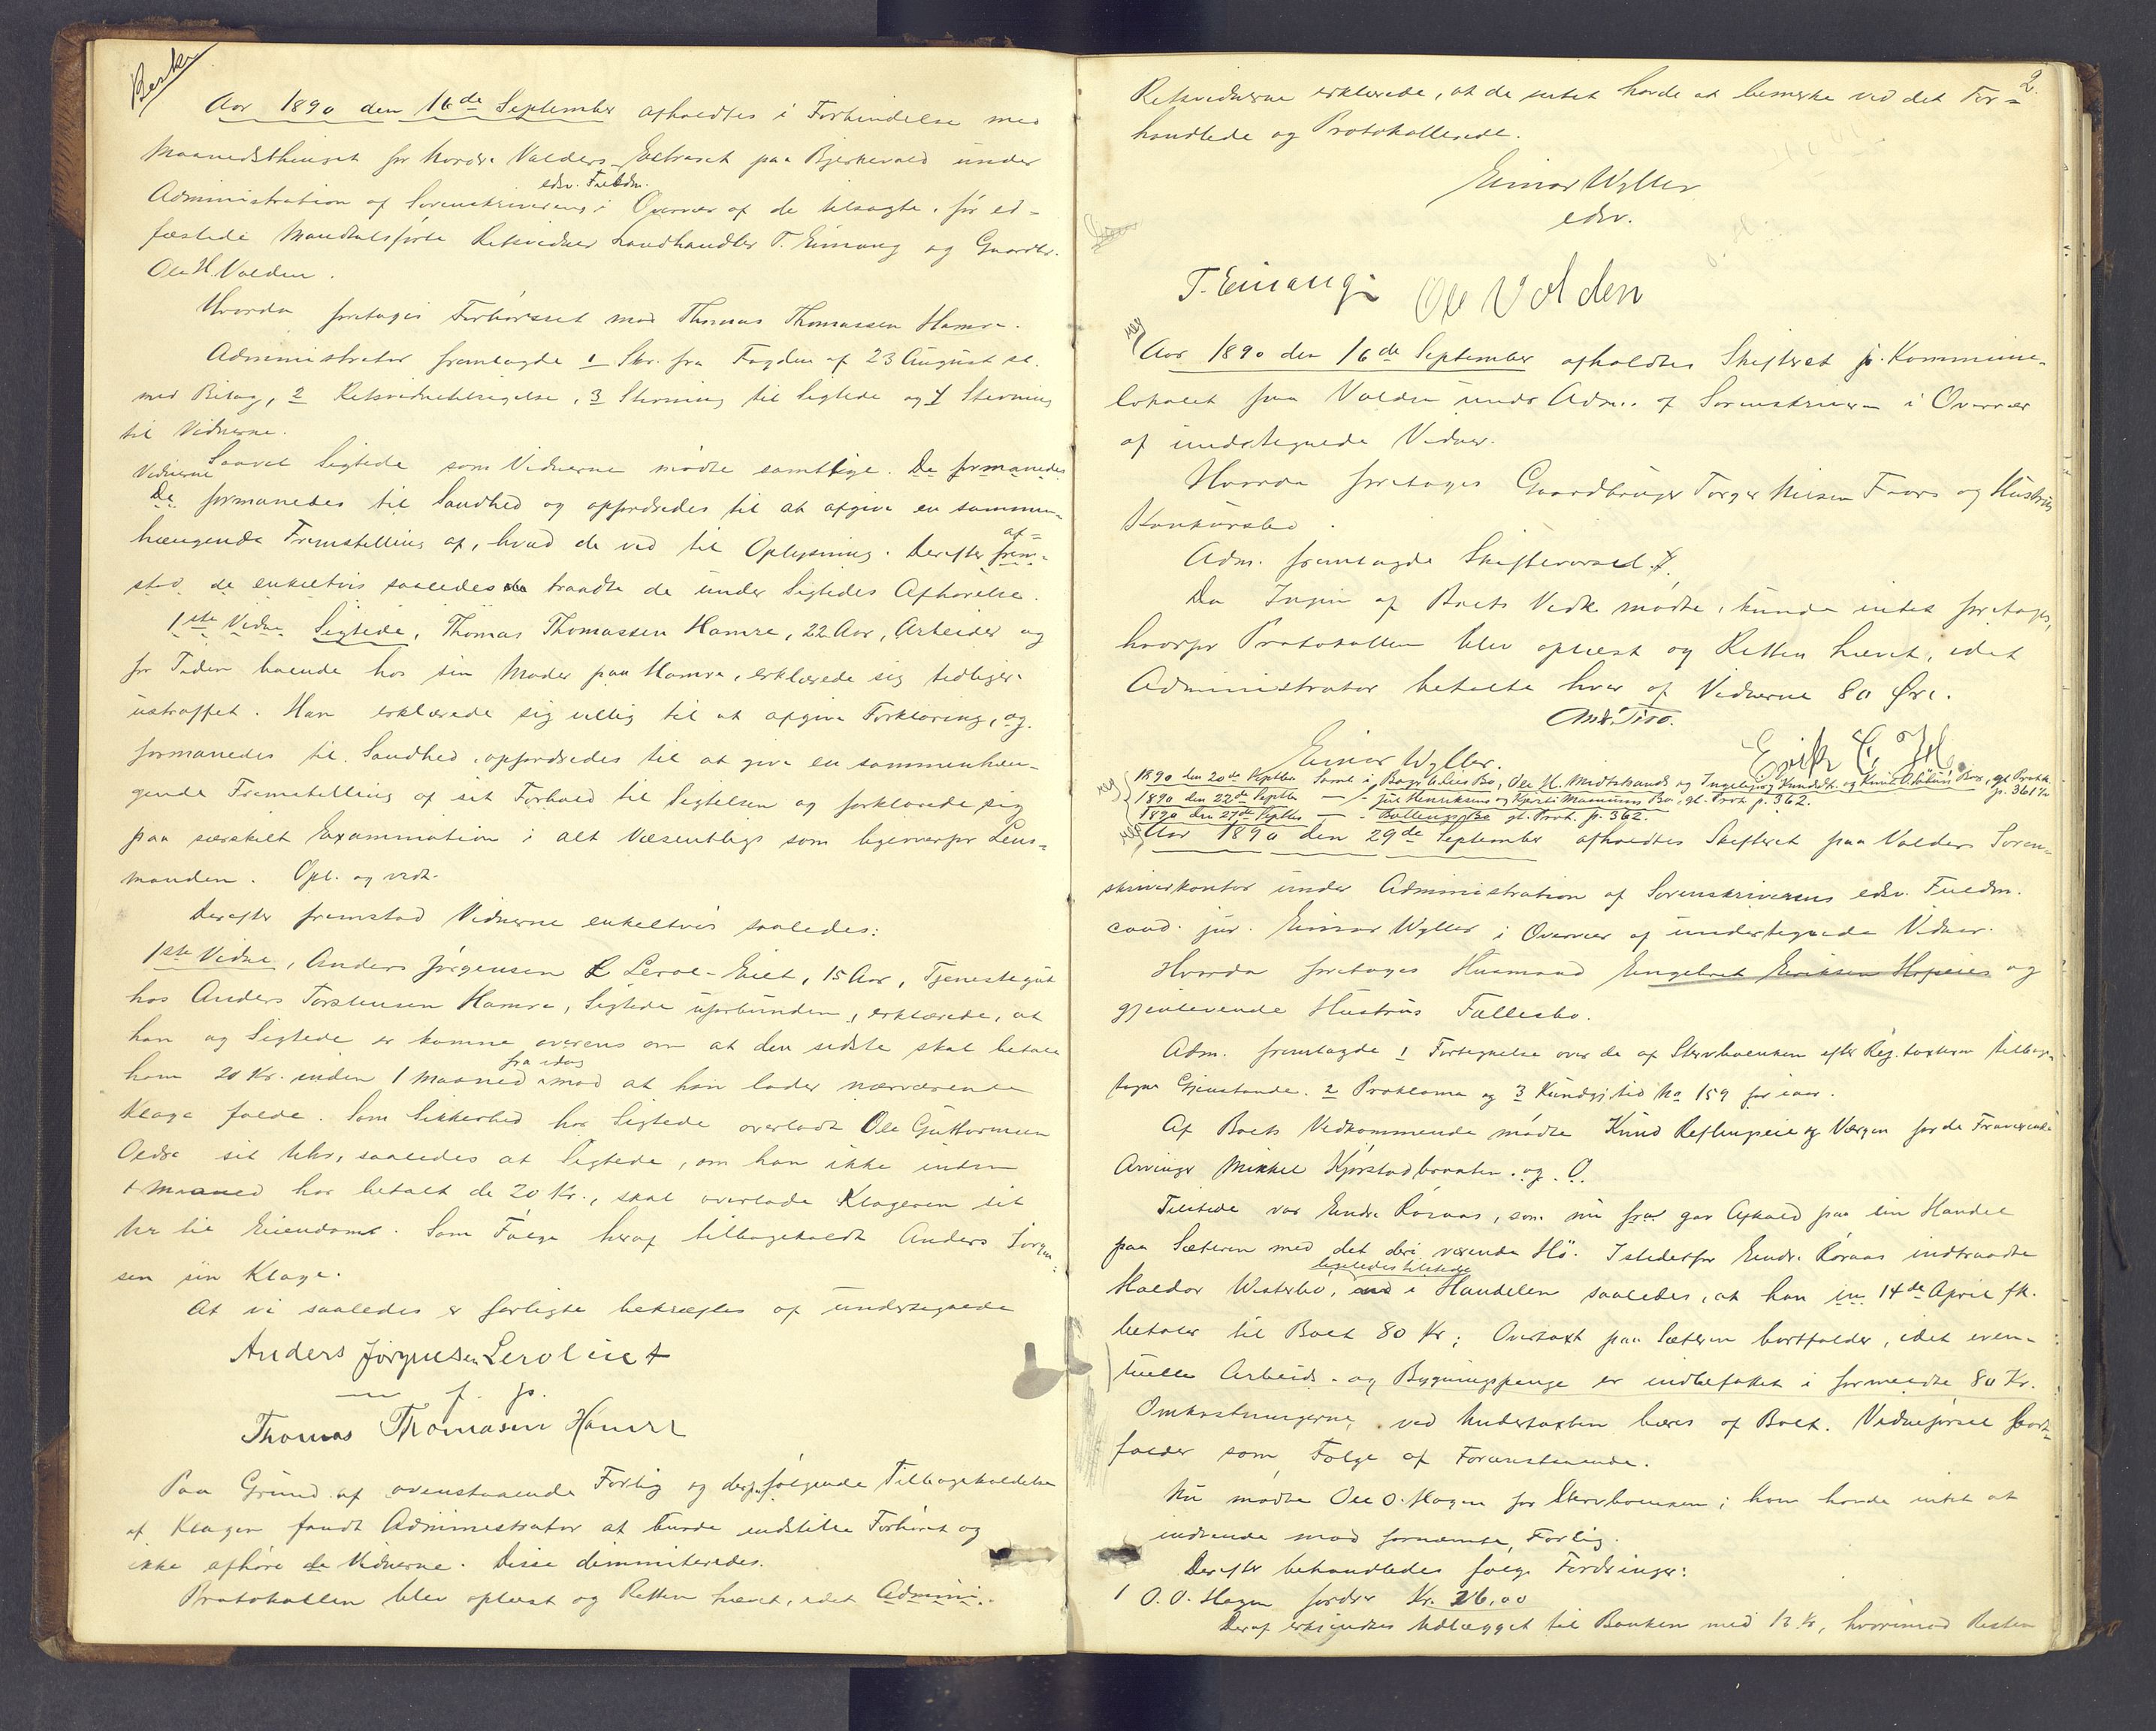 Beskr
Aar 1890 den 16de September afholdtes i Forbindelse med
Maanedsthinget for Nordre Valders Extraret paa Bjerkevold under
edsv. Fuldm.
Administration af Sorenskriverens i Overvær af de tilsagte, før ed-
fæstede Mandtalsførte Retsvidner Landhandler T. Einang og Gaardbr.
Ole H. Volden.
Hvorda foretages Forhørsret mod Thomas Thomassen Hamre.
Administrator fremlagde 1 Skr. fra Fogden af 23 August sl.
med Bilag, 2 Retsvidnetilsigelse, 3 Stevning til Sigtede og 4 Stevning
til Vidnerne.
Saavel Sigtede som Vidnerne mødte samtlige. De formanedes
Vidnerne
De formanedes til Sandhed og opfordredes til at afgive en sammen-
hængende Fremstilling af, hvad de ved til Oplysning. Derefter frem-
stod de enkeltvis saaledes traadte de under Sigtedes Afhørelse.
1ste Vidne Sigtede, Thomas Thomassen Hamre, 22 Aar, Arbeider og
for Tiden boende hos sin Moder paa Hamre, erklærede sig tidligere
ustraffet. Han erklærede sig villig til at afgive Forklaring, og
formanedes til Sandhed, opfordredes til at give en sammenhæn-
gende Fremstilling af sit Forhold til Sigtelsen og forklarede sig
paa særskilt Examination i alt Væsentligt som ligeoverfor Lens-
manden. Opl. og vedt.
Derefter fremstod Vidnerne enkeltvis saaledes:
1ste Vidne, Anders Jørgensen Lerol-Eiet, 15 Aar, Tjenestegut
hos Anders Torstensen Hamre, Sigtede uforbunden, erklærede, at
han og Sigtede er komne overens om at den sidste skal betale
fra idag
ham 20 Kr. inden 1 Maaned imod at han lader nærværende
Klage falde. Som Sikkerhed har Sigtede overladt Ole Guttormsen
sit Uhr, saaledes at Sigtede, om han ikke inden
1 Maaned har betalt de 20 Kr., skal overlade Klageren sit
Uhr til Eiendom. Som Følge heraf tilbagekaldte Anders Jørgen-
sen sin Klage.
At vi saaledes er forligte bekræftes af undertegnede
Anders Jørgensen Lerol eiet
m. f. p.
Thomas Thomasen Hamre
Paa Grund af ovenstaaende Forlig og deraf følgende Tilbagekaldelse
af Klagen fandt Administrator at burde indstille Forhøret og
ikke afhøre de Vidnerne. Disse dimmiteredes.
Protokollen blev oplæst og Retten hævet, idet Admini-
2.
Retsvidnerne erklærede, at de intet havde at bemerke ved det For-
handlede og Protokollerede.
Einar Wyller
edsv.
T. Einang Ole Volden
reg
Aar 1890 den 16de September afholdtes Skifteret i Kommune-
lokalet paa Volden under Adm. af Sorenskriveren i Overvær
af undertegnede Vidner.
Hvorda foretages Gaardbruger Torger Nilsen og Hustrus
Konkursbo.
Adm. fremlagde Skiftevarsel.
Da Ingen af Boets Vedk. mødte, kunde intet foretages,
hvorfor Protokollen blev oplæst og Retten hævet, idet
Administrator betalte hver af Vidnerne 80 Øre.
Einar Wyller.
reg
1890 den 20de Septbr Saml. i Ole H. Midtstrands og Ingebjørg gl. Protk. p. 361
1890 den 22de Septbr — Jul Henriksens og Kjersti Bo. gl. Prot. p. 362.
1890 den 27de Septbr — Bo gl. Prot. p. 362.
reg
Aar 1890 den 29de September afholdtes Skifteret paa Valders Soren-
skriverkontor under Administration af Sorenskriverens edsv. Fuldm.
cand. jur. Einar Wyller i Overvær af undertegnede Vidner.
Hvorda foretages Husmand Engebret Eriksen og
gjenlevende Hustrus Fællesbo.
Adm. fremlagde 1 Fortegnelse over de af Stervboenken efter Reg. taxten tilbage-
tagne Gjenstande. 2 Proklama og 3 Kundgj.tid No 159 for iaar.
Af Boets Vedkommende mødte Knud og Værgen for de Fraværende
Arvinger Mikkel Kjørstadbraaten. og. O.
Tilstede var Endre Røraas, som nu gav Afkald paa sin Handel
paa Sæteren med det deri værende Hø. Istedetfor Endre Røraas indtraadte
ligeledes tilstede
Haldor Westerbø, i Handelen saaledes, at han in 14de April fk.
betaler til Boet 80 Kr; Overtaxt paa Sæteren bortfalder, idet even-
tuelle Arbeids- og Bygningspenge er indbefattet i formeldte 80 Kr.
Omkostningerne ved Undertaxten bæres af Boet. Vidneførsel bort-
falder som Følge af Foranstaaende.
Nu mødte Ole O. Hagen for Stervboenken; han havde intet at
indvende mod fornævnte Forlig.
Derefter behandledes følge Fordringer:
1 O. O. Hagen fordrer Kr. 26,00
Deraf erkjendtes Udlægget til Banken med 12 Kr, hvorimod Resten